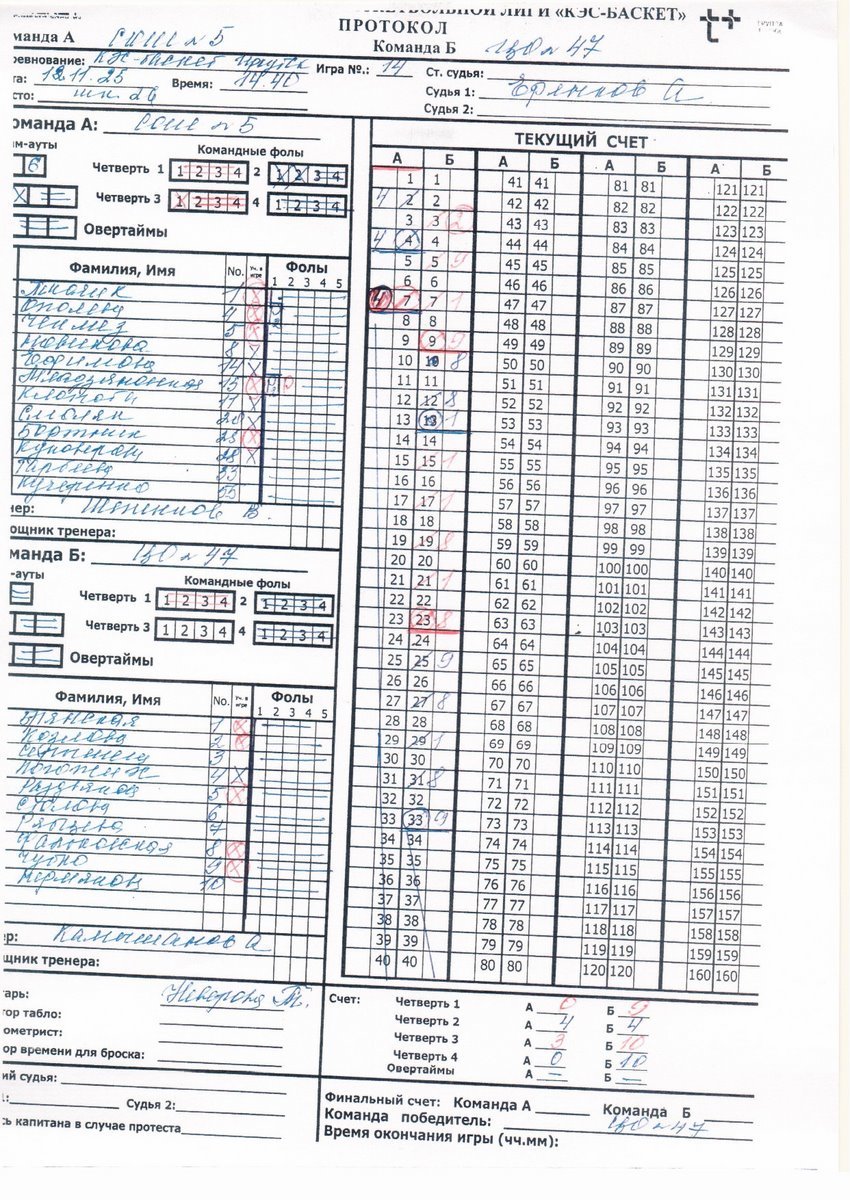 БОЛЬНОЙ ЛИГИ «КЭС-БАСКЕТ»
ПРОТОКОЛ
манда А СОШ №5 Команда Б ЦО №47
ревнование: КЭС-баскет Игра №.: 14 Ст. судья:
та: 12.11.25 Время: 14.40 Судья 1: А
сто: шк. 26 Судья 2:
оманда А: СОШ №5
м-ауты Командные фолы
6 Четверть 1 1 2 3 4 2 1 2 3 4
Четверть 3 1 2 3 4 4 1 2 3 4
Овертаймы
Фамилия, Имя No. Уч. в игре Фолы
1 2 3 4 5
1
4
5
Новикова 8
Ефимова 14
15
11
Смоляк
Бортник 25
28
33
Кучеренко 55
нер: В.
ощник тренера:
манда Б: ЦО №47
-ауты Командные фолы
Четверть 1 1 2 3 4 2 1 2 3 4
Четверть 3 1 2 3 4 4 1 2 3 4
Овертаймы
Фамилия, Имя No. Уч. в игре Фолы
1 2 3 4 5
Брянская 1
Козлова 2
3
4
5
6
7
8
Чупко 9
10
ер: А
щник тренера:
ТЕКУЩИЙ СЧЕТ
А Б А Б А Б А Б
1 1 41 41 81 81 121 121
4 2 2 42 42 82 82 122 122
3 3 2 43 43 83 83 123 123
4 4 4 44 44 84 84 124 124
5 5 9 45 45 85 85 125 125
6 6 46 46 86 86 126 126
4 7 7 1 47 47 87 87 127 127
8 8 48 48 88 88 128 128
9 9 9 49 49 89 89 129 129
10 10 8 50 50 90 90 130 130
11 11 51 51 91 91 131 131
12 12 8 52 52 92 92 132 132
13 13 1 53 53 93 93 133 133
14 14 54 54 94 94 134 134
15 15 1 55 55 95 95 135 135
16 16 56 56 96 96 136 136
17 17 1 57 57 97 97 137 137
18 18 58 58 98 98 138 138
19 19 8 59 59 99 99 139 139
20 20 60 60 100 100 140 140
21 21 1 61 61 101 101 141 141
22 22 62 62 102 102 142 142
23 23 8 63 63 103 103 143 143
24 24 64 64 104 104 144 144
25 25 9 65 65 105 105 145 145
26 26 66 66 106 106 146 146
27 27 8 67 67 107 107 147 147
28 28 68 68 108 108 148 148
29 29 1 69 69 109 109 149 149
30 30 70 70 110 110 150 150
31 31 8 71 71 111 111 151 151
32 32 72 72 112 112 152 152
33 33 9 73 73 113 113 153 153
34 34 74 74 114 114 154 154
35 35 75 75 115 115 155 155
36 36 76 76 116 116 156 156
37 37 77 77 117 117 157 157
38 38 78 78 118 118 158 158
39 39 79 79 119 119 159 159
40 40 80 80 120 120 160 160
тарь: Неверова Т.
тор табло:
ометрист:
ор времени для броска:
Счет: Четверть 1 А 0 Б 9
Четверть 2 А 4 Б 4
Четверть 3 А 3 Б 10
Четверть 4 А 0 Б 10
Овертаймы А – Б –
ий судья:
1: Судья 2:
ь капитана в случае протеста
Финальный счет: Команда А Команда Б
Команда победитель: ЦО №47
Время окончания игры (чч.мм):